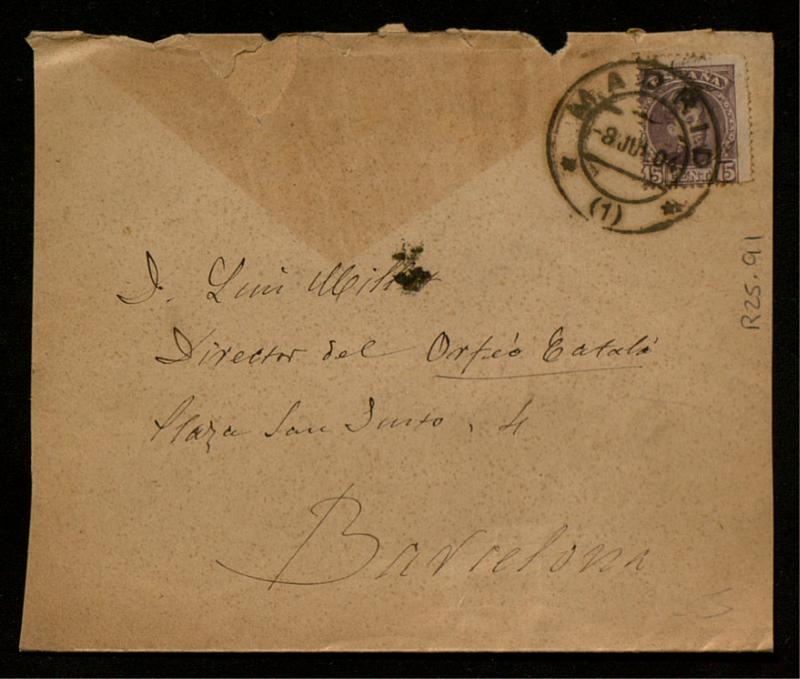 ESPAÑA
MADRID
-8 JUL 04
(1)
15 15
R25.91
D. Luis Millet
Director del Orfeó Catalá
Plaza San Justo, 4
Barcelona